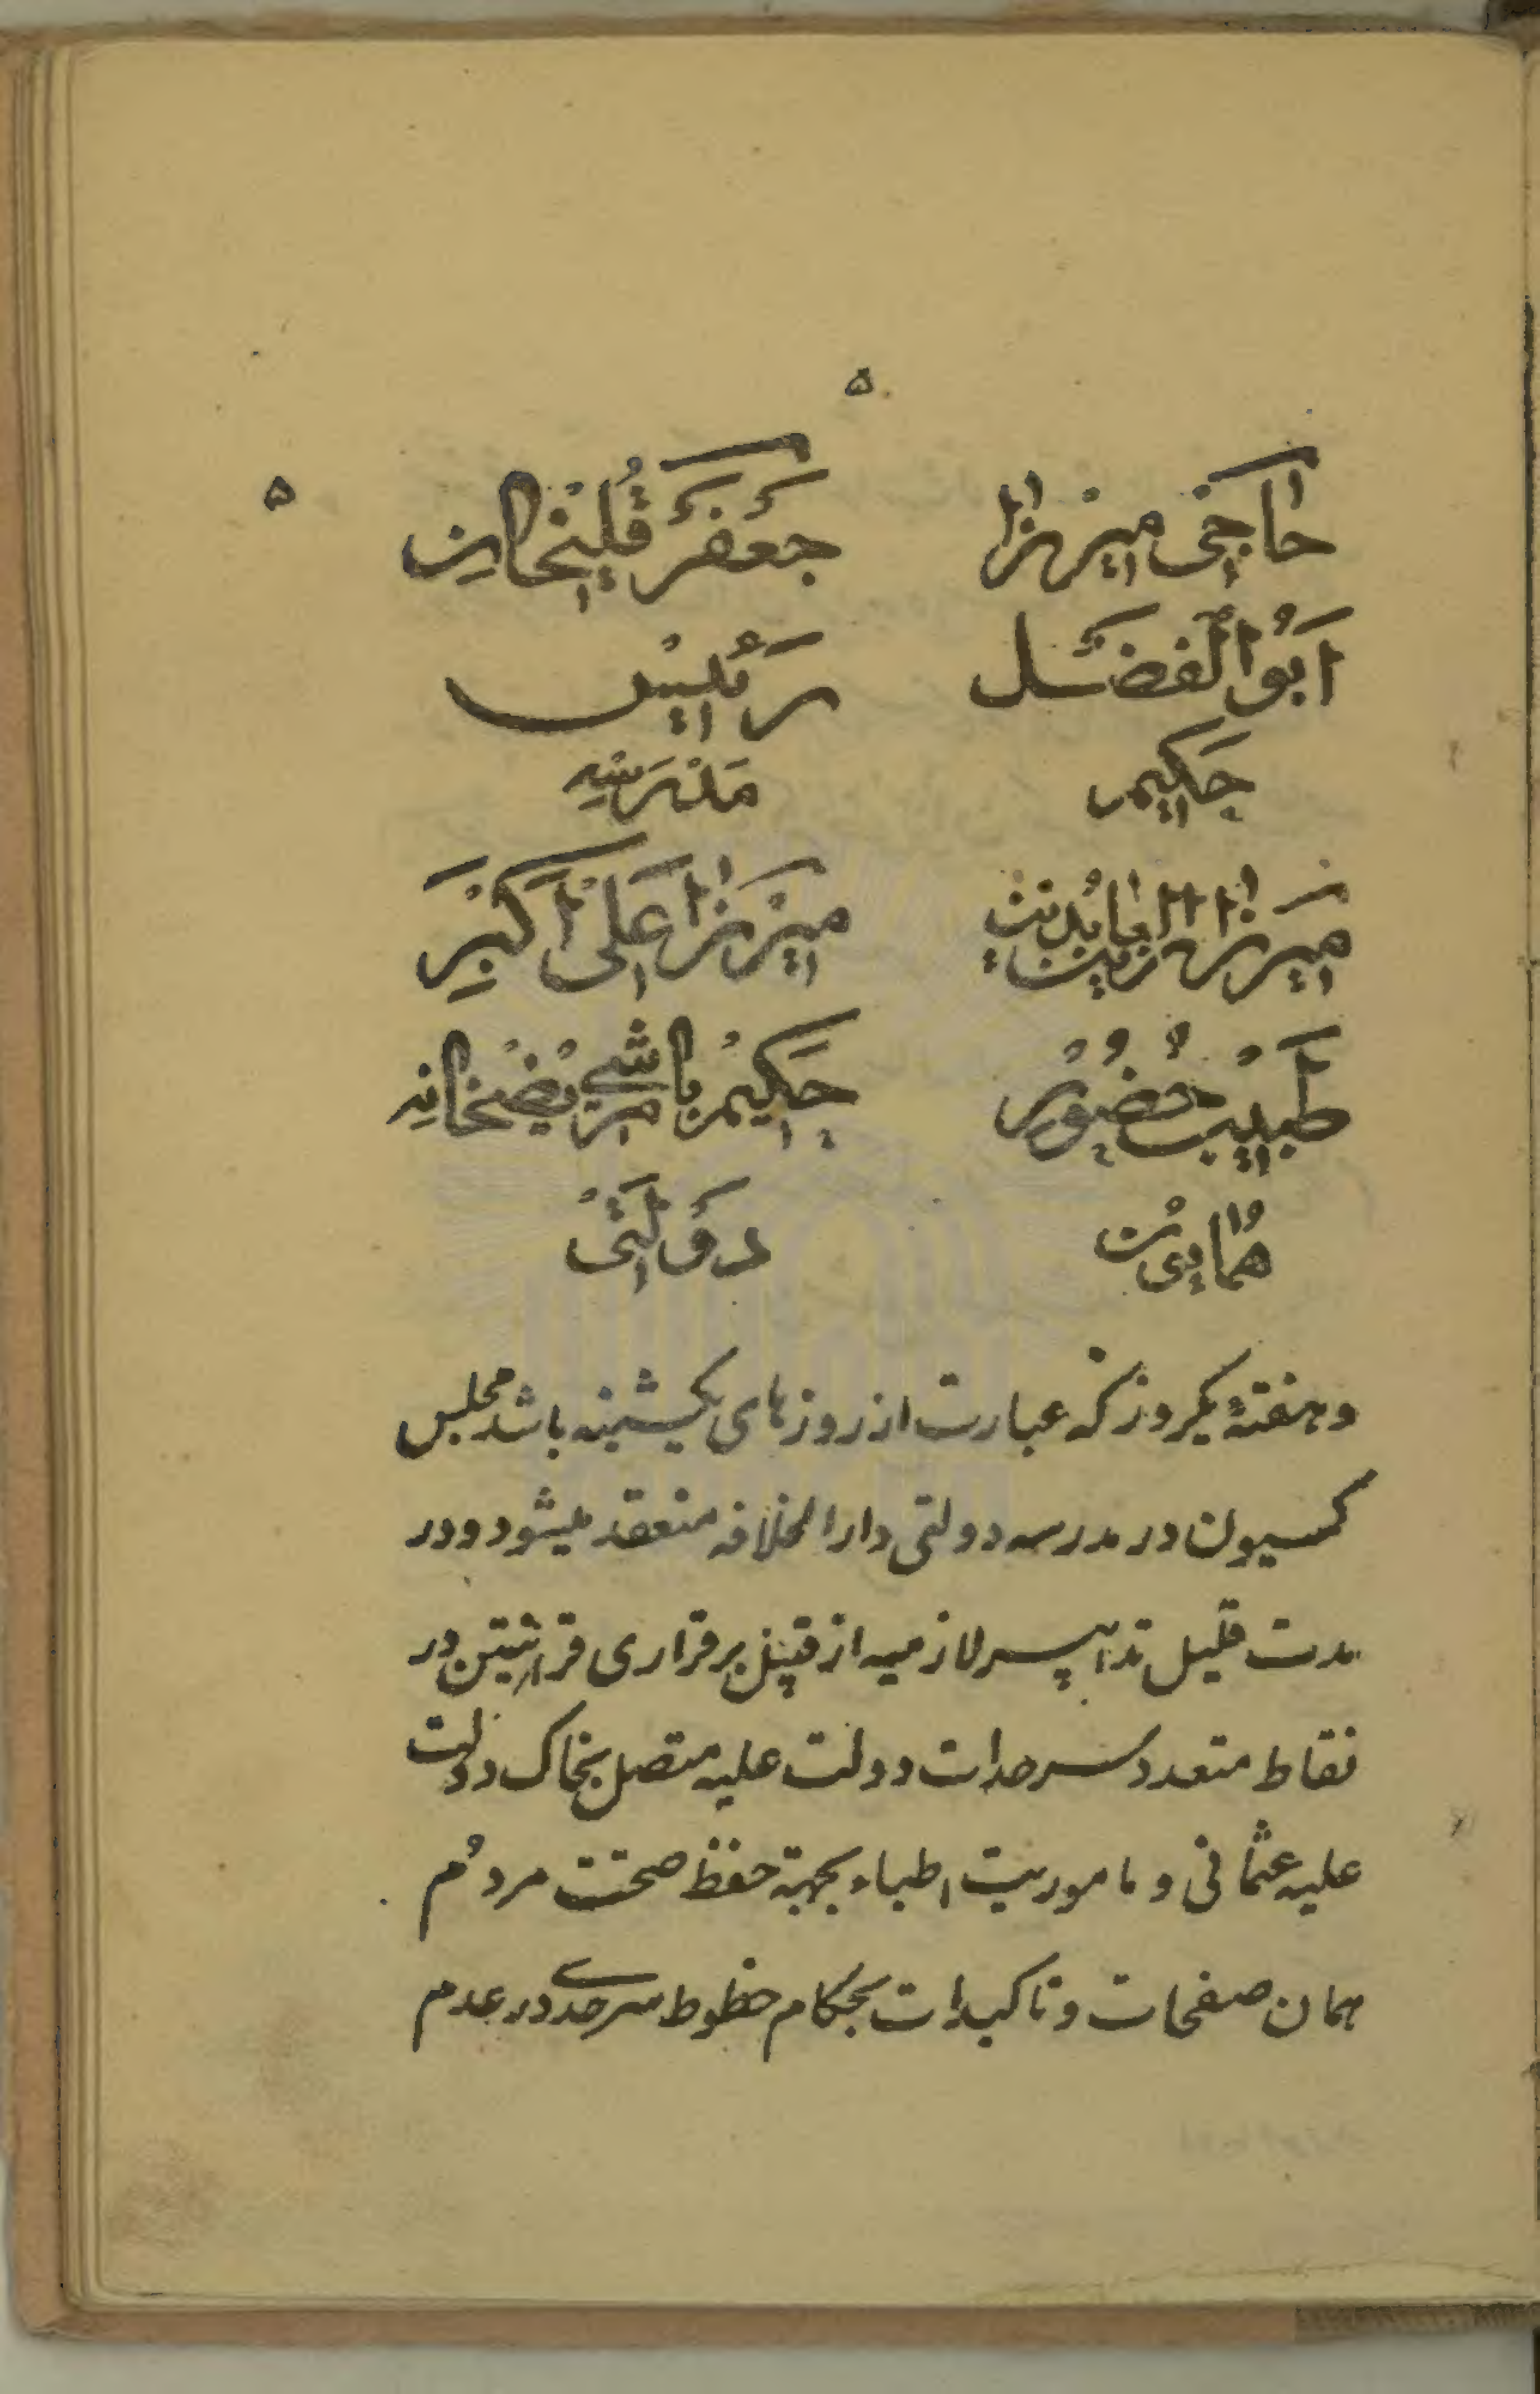 ۵
۵
حاجی میرزا جعفر قلیخان
ابوالفضل رئیس
حکیم مدرسه
میرزا زین العابدین میرزا علی اکبر
طبیب حضور حکیم باشی مریضخانه
همایون دولتی
و هفتهٔ یکروز که عبارت از روزهای یکشنبه باشد مجلس
کمسیون در مدرسه دولتی دارالخلافه منعقد میشود و در
مدت قلیل تدابیر لازمیه از قبیل برقراری قرانتین در
نقاط متعدد سرحدات دولت علیه متصل بخاک دولت
علیه عثمانی و ماموریت اطباء بجهة حفظ صحت مردُم
همان صفحات و تاکیدات بحکام خطوط سرحدی در عدم